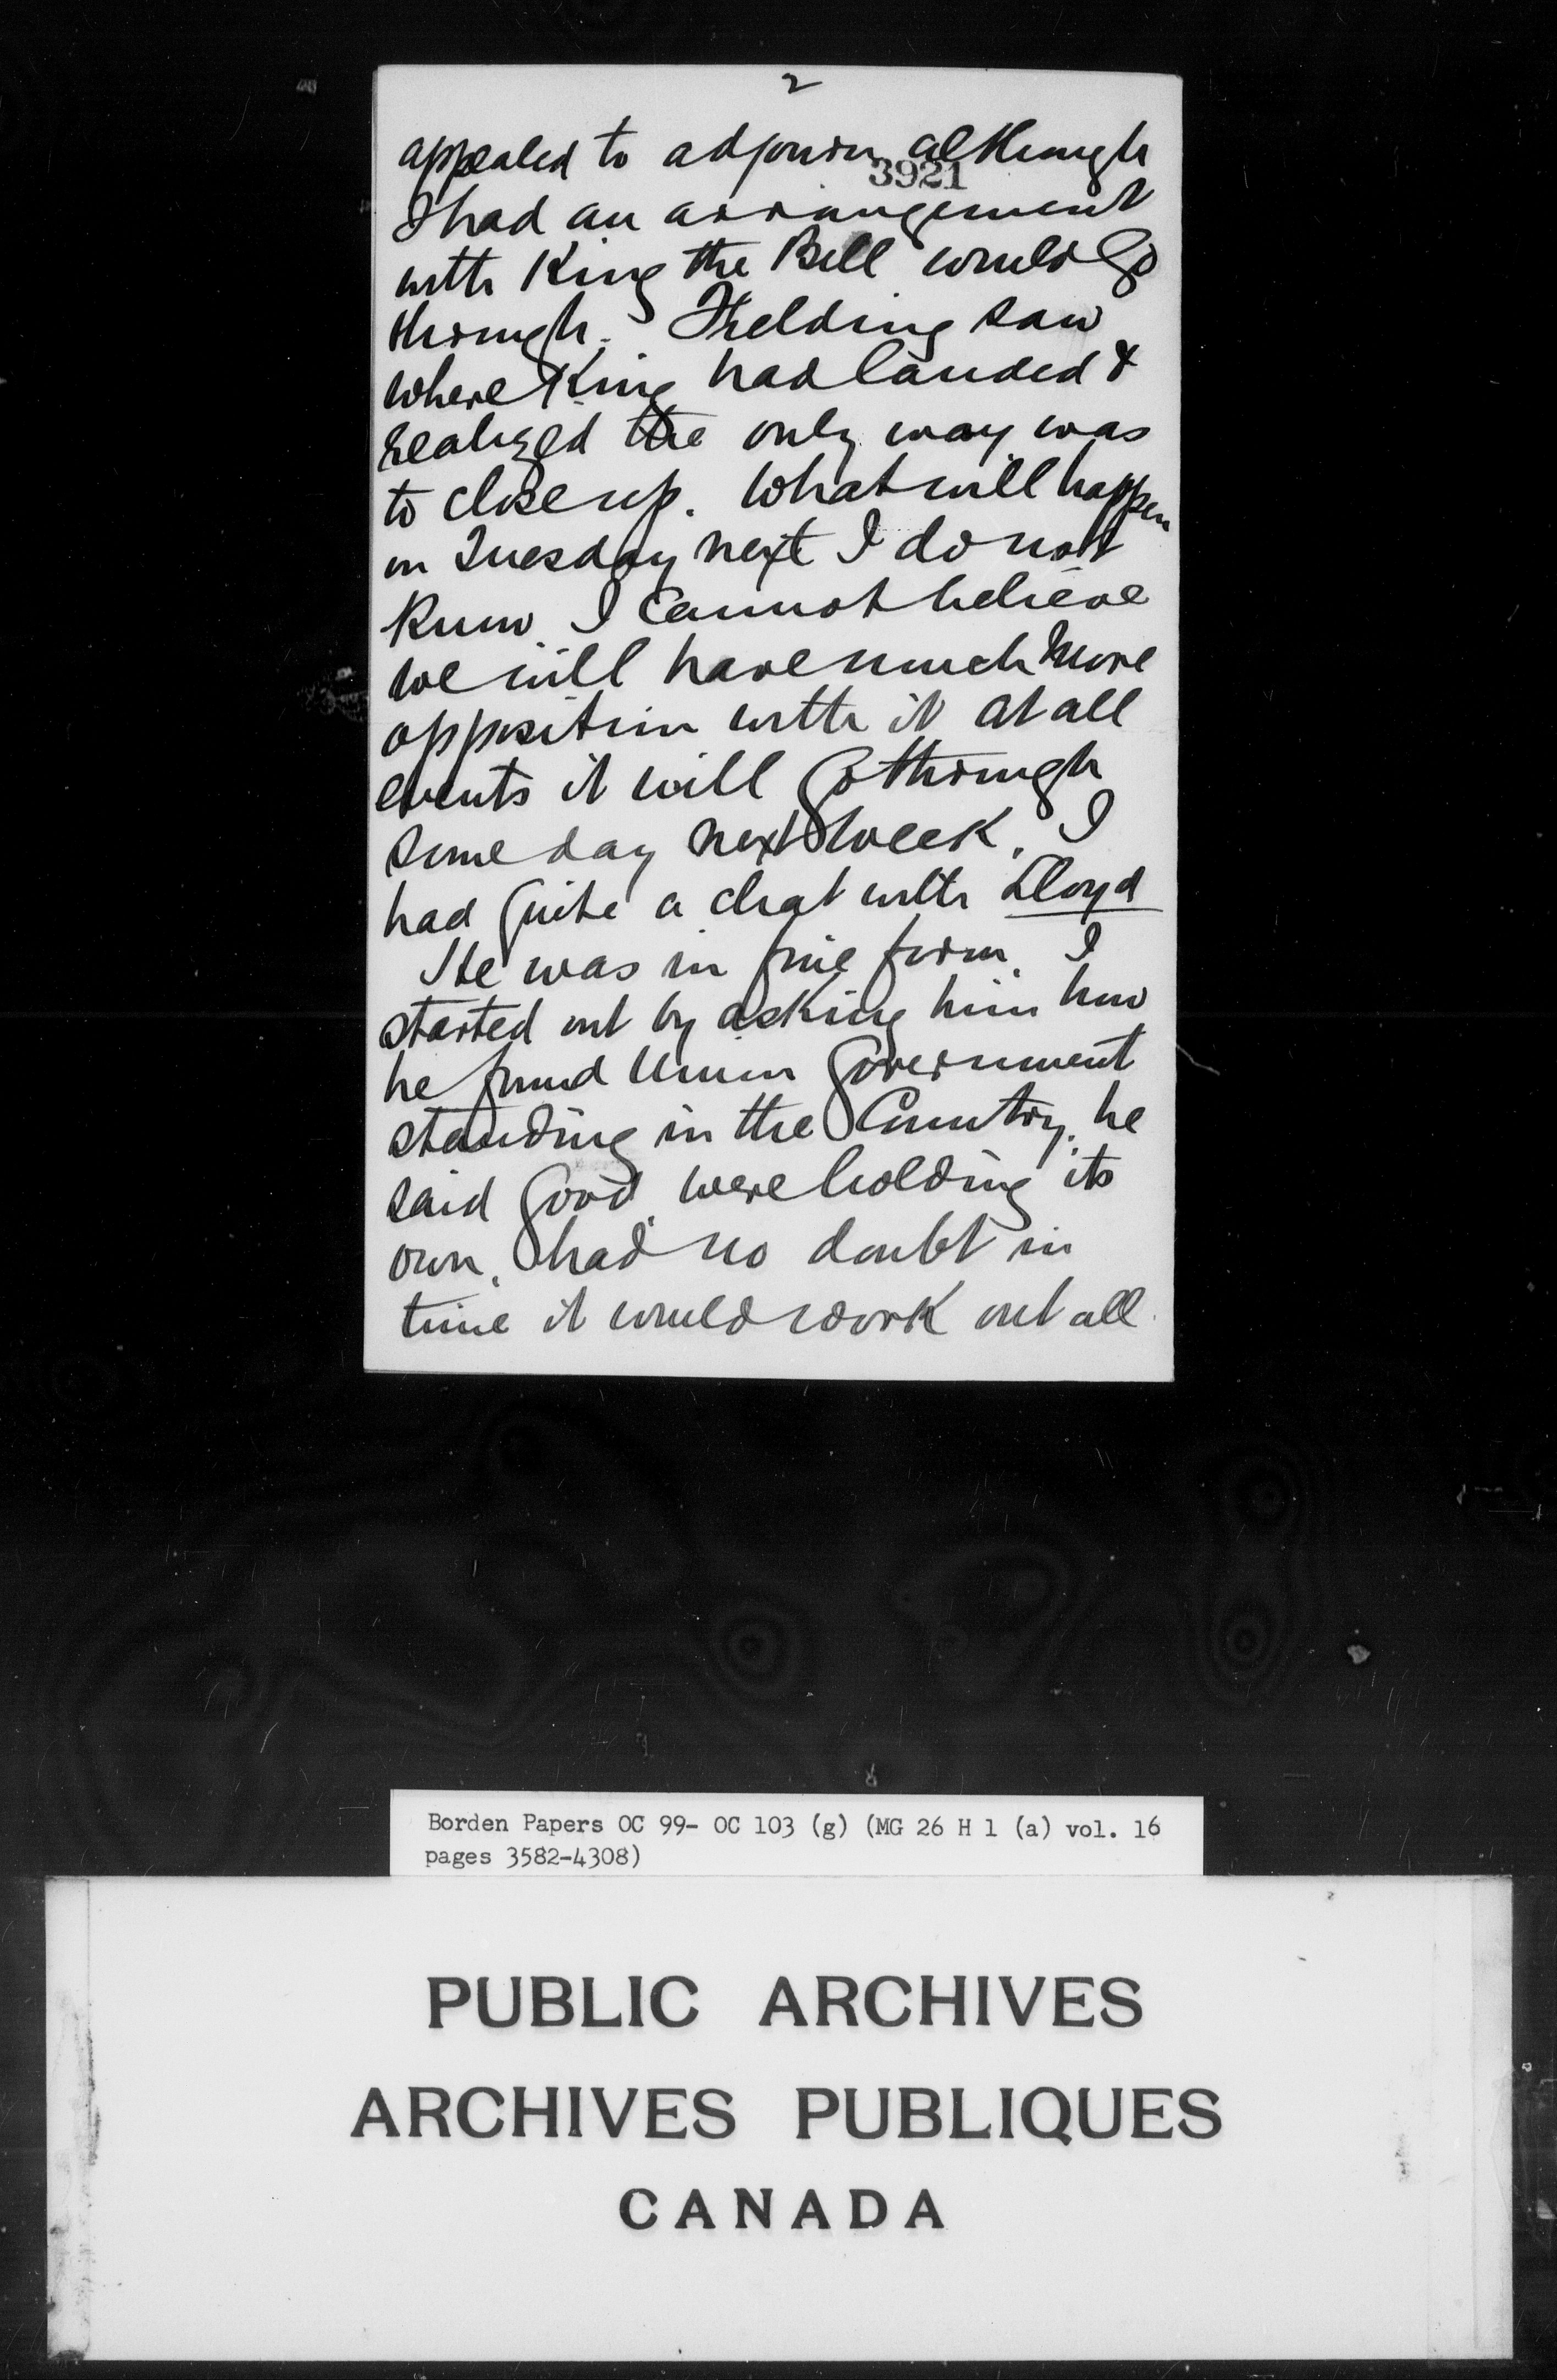 2
appealed to adjourn although
3921
I had an arrangement
with King the Bill would Go
through. Fielding saw
where King had landed &
realized the only way was
to close up. What will happen
on Tuesday next I do not
Know. I cannot believe
we will have much more
opposition with it at all
events it will Go through
some day next week. I
had Quite a chat with Lloyd
He was in fine form. I
started out by asking him how
he found Union Government
standing in the Country. he
said Good. were holding its
own. had no doubt in
time it would work out all
Borden Papers OC 99- OC 103 (g) (MG 26 H 1 (a) vol. 16
pages 3582-4308)
PUBLIC ARCHIVES
ARCHIVES PUBLIQUES
CANADA